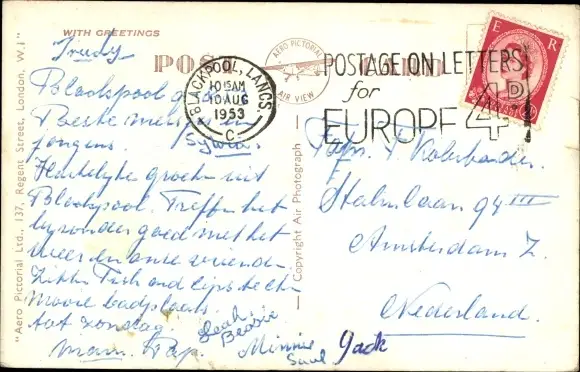 WITH GREETINGS
POST CARD
AERO PICTORIAL
AIR VIEW
BLACKPOOL, LANCS
10 15AM
10 AUG
1953
C
POSTAGE ON LETTERS
for
EUROPE 4D
E R
Trudy
Blackpool
Beste
jongens. Sylvia.
Hartelijke groeten uit
Blackpool. Treffen het
byzonder goed met het
weer en onze vrienden
Fish and Chips
Mooie badplaats.
tot zondag
Mam. Pap.
Leah
Beasie
Minnie
Saul
Jack
Fam.
Stalinlaan 94 III
Amsterdam Z.
Nederland.
"Aero Pictorial Ltd., 137, Regent Street, London, W.1"
Copyright Air Photograph